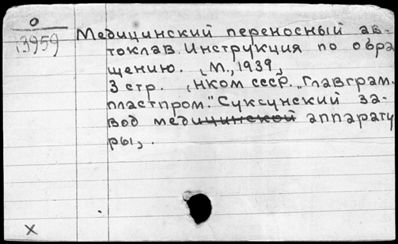 О
13959
Медицинский переносный ав-
токлав. Инструкция по обра
щению. [М., 1939]
3 стр. [НКОМ СССР. „Главграм-
пластпром." Суксунский за-
вод медицинской аппарату
ры].
X